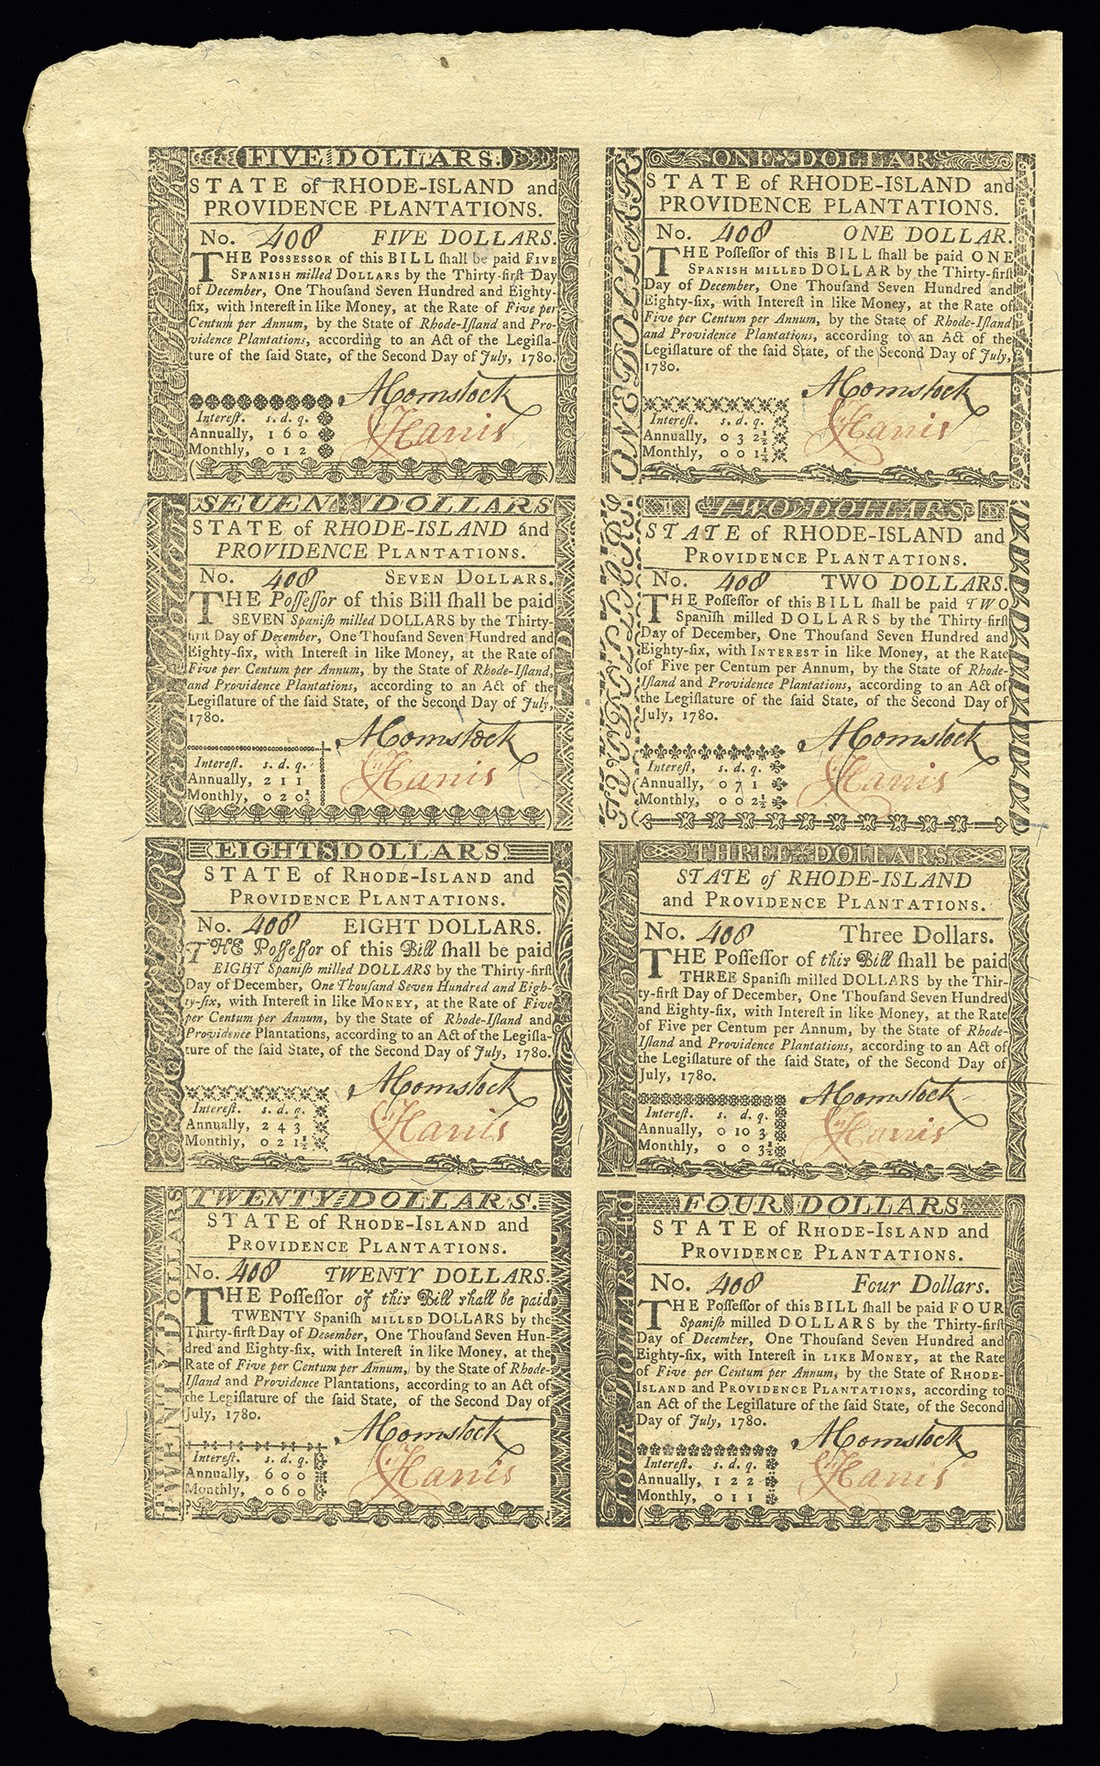 FIVE DOLLARS.
STATE of RHODE-ISLAND and
PROVIDENCE PLANTATIONS.
No. 408 FIVE DOLLARS.
THE POSSESSOR of this BILL ſhall be paid FIVE
SPANISH milled DOLLARS by the Thirty-firſt Day
of December, One Thouſand Seven Hundred and Eighty-
ſix, with Intereſt in like Money, at the Rate of Five per
Centum per Annum, by the State of Rhode-Iſland and Pro-
vidence Plantations, according to an Act of the Legiſla-
ture of the ſaid State, of the Second Day of July, 1780.
AComstock
Harris
Intereſt. s. d. q.
Annually, 1 6 0
Monthly, 0 1 2
ONE DOLLAR
ONE DOLLEAR
STATE of RHODE-ISLAND and
PROVIDENCE PLANTATIONS.
No. 408 ONE DOLLAR.
THE Poſſeſſor of this BILL ſhall be paid ONE
SPANISH MILLED DOLLAR by the Thirty-firſt
Day of December, One Thouſand Seven Hundred and
Eighty-ſix, with Intereſt in like Money, at the Rate of
Five per Centum per Annum, by the State of Rhode-Iſland
and Providence Plantations, according to an Act of the
Legiſlature of the ſaid State, of the Second Day of July,
1780.
AComstock
Harris
Intereſt. s. d. q.
Annually, 0 3 2½
Monthly, 0 0 1¼
SEUEN DOLLARS
STATE of RHODE-ISLAND and
PROVIDENCE PLANTATIONS.
No. 408 SEVEN DOLLARS.
THE Poſſeſſor of this Bill ſhall be paid
SEVEN Spaniſh milled DOLLARS by the Thirty-
firſt Day of December, One Thouſand Seven Hundred and
Eighty-ſix, with Intereſt in like Money, at the Rate of
Five per Centum per Annum, by the State of Rhode-Iſland,
and Providence Plantations, according to an Act of the
Legiſlature of the ſaid State, of the Second Day of July,
1780.
AComstock
Harris
Intereſt. s. d. q.
Annually, 2 1 1
Monthly, 0 2 0½
TWO DOLLARS
STATE of RHODE-ISLAND and
PROVIDENCE PLANTATIONS.
No. 408 TWO DOLLARS.
THE Poſſeſſor of this BILL ſhall be paid TWO
Spaniſh milled DOLLARS by the Thirty firſt
Day of December, One Thouſand Seven Hundred and
Eighty-ſix, with INTEREST in like Money, at the Rate
of Five per Centum per Annum, by the State of Rhode-
Iſland and Providence Plantations, according to an Act of
the Legiſlature of the ſaid State, of the Second Day of
July, 1780.
AComstock
Harris
Intereſt, s. d. q.
Annually, 0 7 1
Monthly, 0 0 2½
EIGHT DOLLARS
STATE of RHODE-ISLAND and
PROVIDENCE PLANTATIONS.
No. 408 EIGHT DOLLARS.
THE Poſſeſſor of this Bill ſhall be paid
EIGHT Spaniſh milled DOLLARS by the Thirty-firſt
Day of December, One Thouſand Seven Hundred and Eigh-
ty-ſix, with Intereſt in like MONEY, at the Rate of Five
per Centum per Annum, by the State of Rhode-Iſland and
Providence Plantations, according to an Act of the Legiſla-
ture of the ſaid State, of the Second Day of July, 1780.
AComstock
Harris
Intereſt. s. d. q.
Annually, 2 4 3
Monthly, 0 2 1½
THREE DOLLARS
STATE of RHODE-ISLAND
and PROVIDENCE PLANTATIONS.
No. 408 Three Dollars.
THE Poſſeſſor of this Bill ſhall be paid
THREE Spaniſh milled DOLLARS by the Thir-
ty-firſt Day of December, One Thouſand Seven Hundred
and Eighty-ſix, with Intereſt in like Money, at the Rate
of Five per Centum per Annum, by the State of Rhode-
Iſland and Providence Plantations, according to an Act of
the Legiſlature of the ſaid State, of the Second Day of
July, 1780.
AComstock
Harris
Intereſt. s. d. q.
Annually, 0 10 3
Monthly, 0 0 3½
TWENTY DOLLARS.
TWENTY DOLLARS
STATE of RHODE-ISLAND and
PROVIDENCE PLANTATIONS.
No. 408 TWENTY DOLLARS.
THE Poſſeſſor of this Bill ſhall be paid
TWENTY Spaniſh MILLED DOLLARS by the
Thirty-firſt Day of Desember, One Thouſand Seven Hun-
dred and Eighty-ſix, with Intereſt in like Money, at the
Rate of Five per Centum per Annum, by the State of Rhode-
Iſland and Providence Plantations, according to an Act of
the Legiſlature of the ſaid State, of the Second Day of
July, 1780.
AComstock
Harris
Intereſt. s. d. q.
Annually, 6 0 0
Monthly, 0 6 0
FOUR DOLLARS
FOUR DOLLARS
STATE of RHODE-ISLAND and
PROVIDENCE PLANTATIONS.
No. 408 Four Dollars.
THE Poſſeſſor of this BILL ſhall be paid FOUR
Spaniſh milled DOLLARS by the Thirty-firſt
Day of December, One Thouſand Seven Hundred and
Eighty-ſix, with Intereſt in LIKE MONEY, at the Rate
of Five per Centum per Annum, by the State of RHODE-
ISLAND and PROVIDENCE PLANTATIONS, according to
an Act of the Legiſlature of the ſaid State, of the Second
Day of July, 1780.
AComstock
Harris
Intereſt. s. d. q.
Annually, 1 2 2
Monthly, 0 1 1